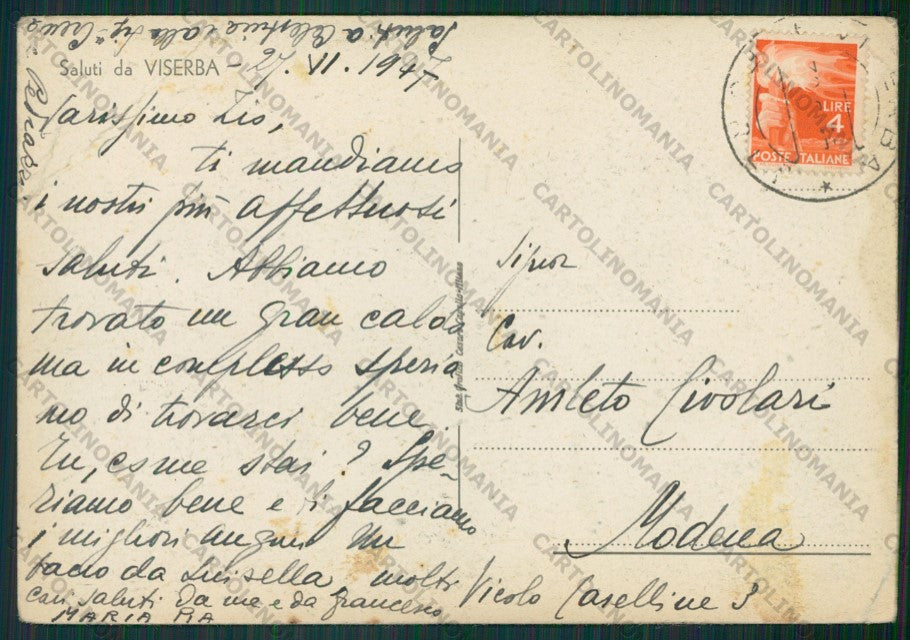 Saluti a Celestina e alla Sig.ra
Saluti da VISERBA - 2. VI. 1947
Carissimo Zio,
ti mandiamo
i nostri più affettuosi
saluti. Abbiamo
trovato un gran caldo
ma in complesso speria
mo di trovarci bene.
Tu, come stai? Spe-
riamo bene e ti facciamo
i migliori auguri. Un
bacio da Luisella molti
cari saluti da me e da Francesco
MARIA PIA
LIRE
4
POSTE ITALIANE
Signor
Cav.
Amleto Civolari
Modena
Vicolo Caselline 3